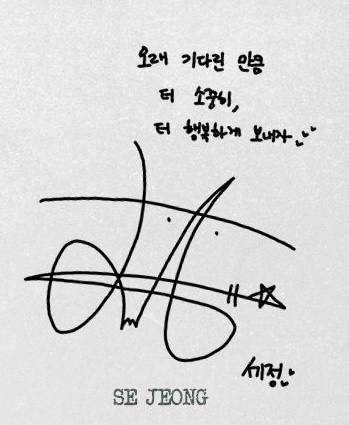 오래 기다린 만큼
더 소중히,
더 행복하게 보내자
세정
SE JEONG